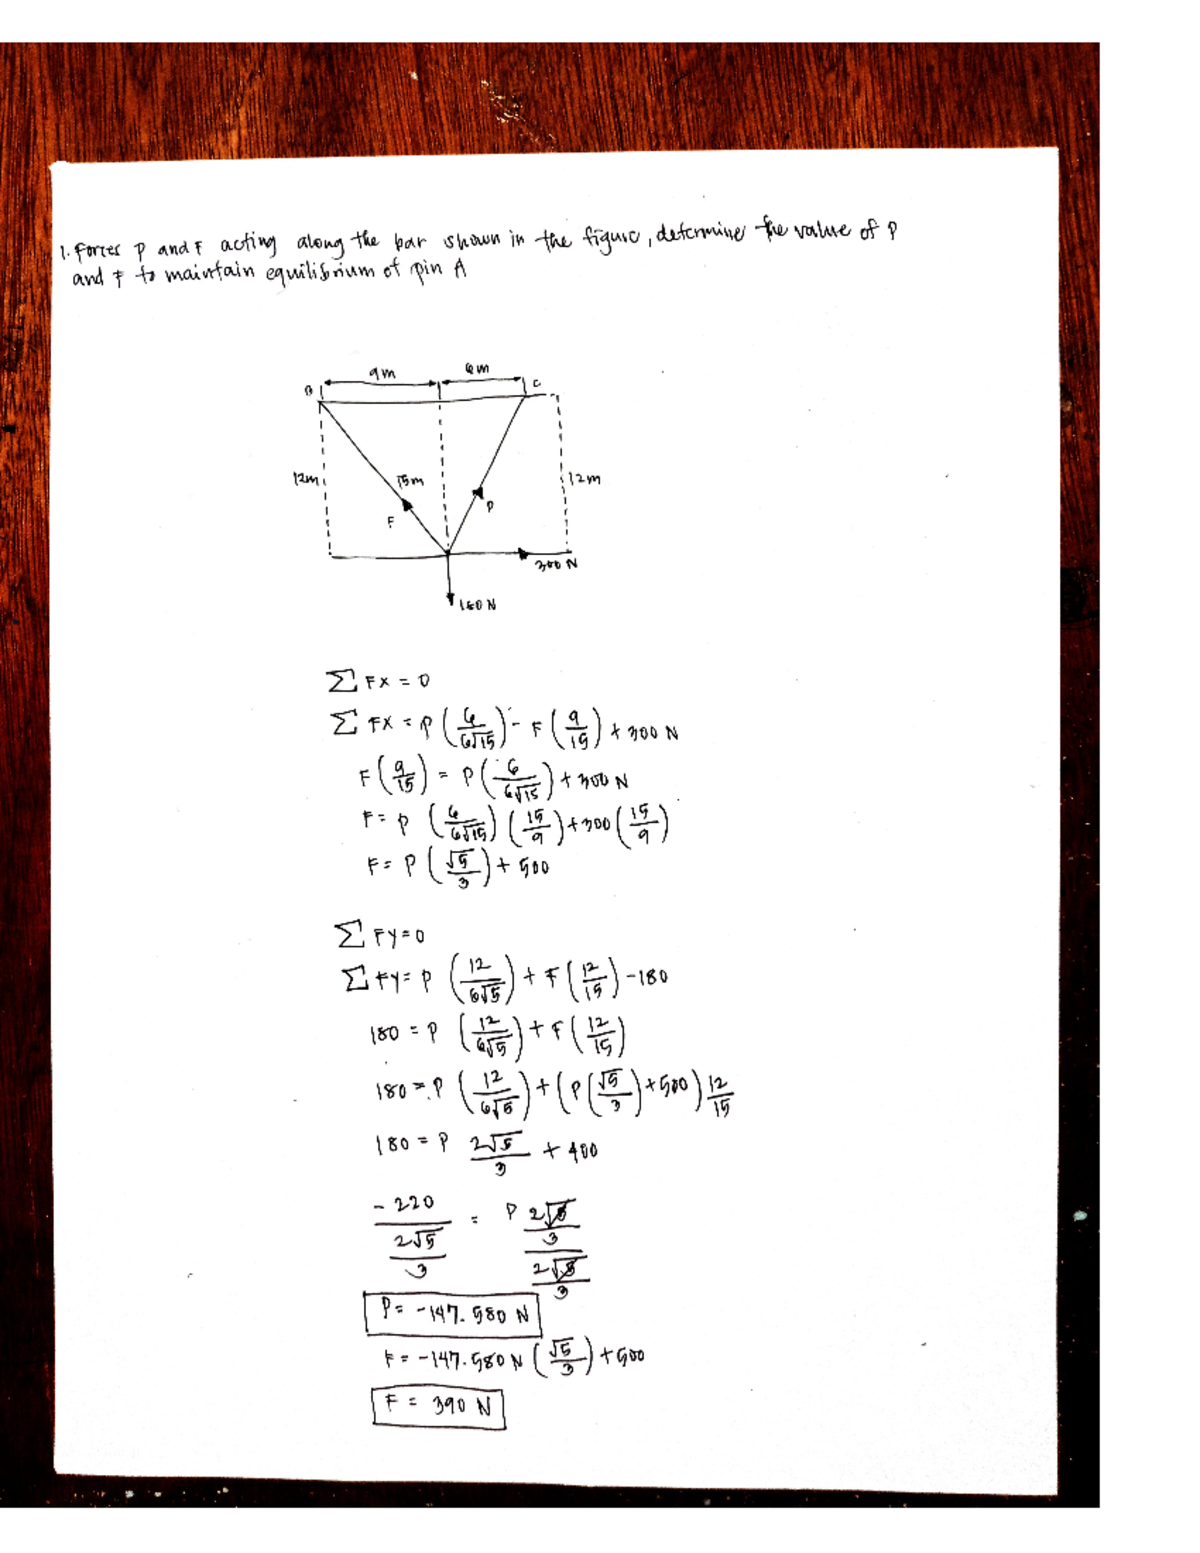 1. Forces P and F acting along the bar shown in the figure, determine the value of P
and F to maintain equilibrium of pin A
9m 6m
B C
12m 15m 12m
F P
300 N
180 N
∑ FX = 0
∑ FX = P (6/6√15) - F (9/15) + 300 N
F (9/15) = P (6/6√15) + 300 N
F = P (6/6√15) (15/9) + 300 (15/9)
F = P (√5/3) + 500
∑ FY = 0
∑ FY = P (12/6√5) + F (12/15) - 180
180 = P (12/6√5) + F (12/15)
180 = P (12/6√5) + (P (√5/3) + 500) 12/15
180 = P 2√5/3 + 400
-220/(2√5/3) = P (2√5/3)/(2√5/3)
P = -147.580 N
F = -147.580 N (√5/3) + 500
F = 390 N